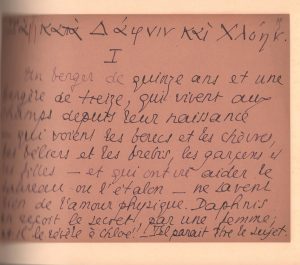 κατὰ Δάφνιν καὶ Χλόην.
I
Un berger de quinze ans et une
bergère de treize, qui vivent aux
champs depuis leur naissance
— qui voient les boucs et les chèvres,
les béliers et les brebis, les garçons
filles — et qui ont vu aider le
taureau ou l'étalon — ne savent
rien de l'amour physique. Daphnis
en reçoit le secret, par une femme,
le révèle à Chloé. Tel parait être le sujet